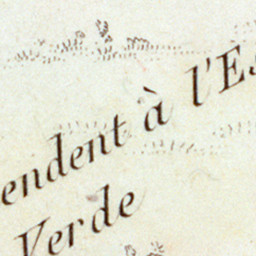 endent à l'Es
Verde